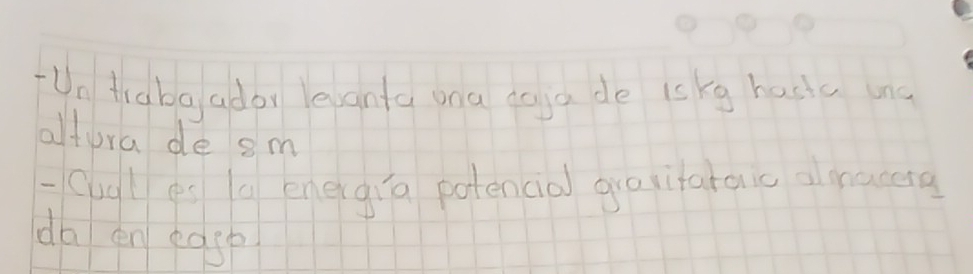 -Un trabajador levanta una caja de 15kg hasta una
altura de 8m
-Cual es la energía potencial gravitatoria almacena
da en